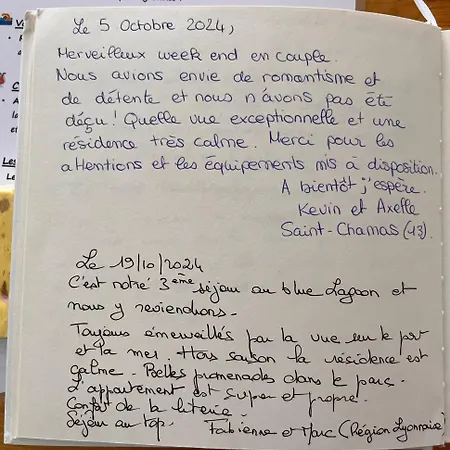 Le 5 Octobre 2024,
Merveilleux week end en couple.
Nous avions envie de romantisme et
de détente et nous n'avons pas été
déçu ! Quelle vue exceptionnelle et une
résidence très calme. Merci pour les
attentions et les équipements mis à disposition.
A bientôt j'espère.
Kevin et Axelle
Saint-Chamas (13).
Le 19/10/2024
C'est notre 3ème séjour au blue Lagoon et
nous y reviendrons.
Toujours émerveillés par la vue sur le port
et la mer. Hors saison la résidence est
calme. Belles promenades dans le parc.
L'appartement est super et propre.
Confort de la literie.
Séjour au top.
Fabienne et Marc (Région Lyonnaise)